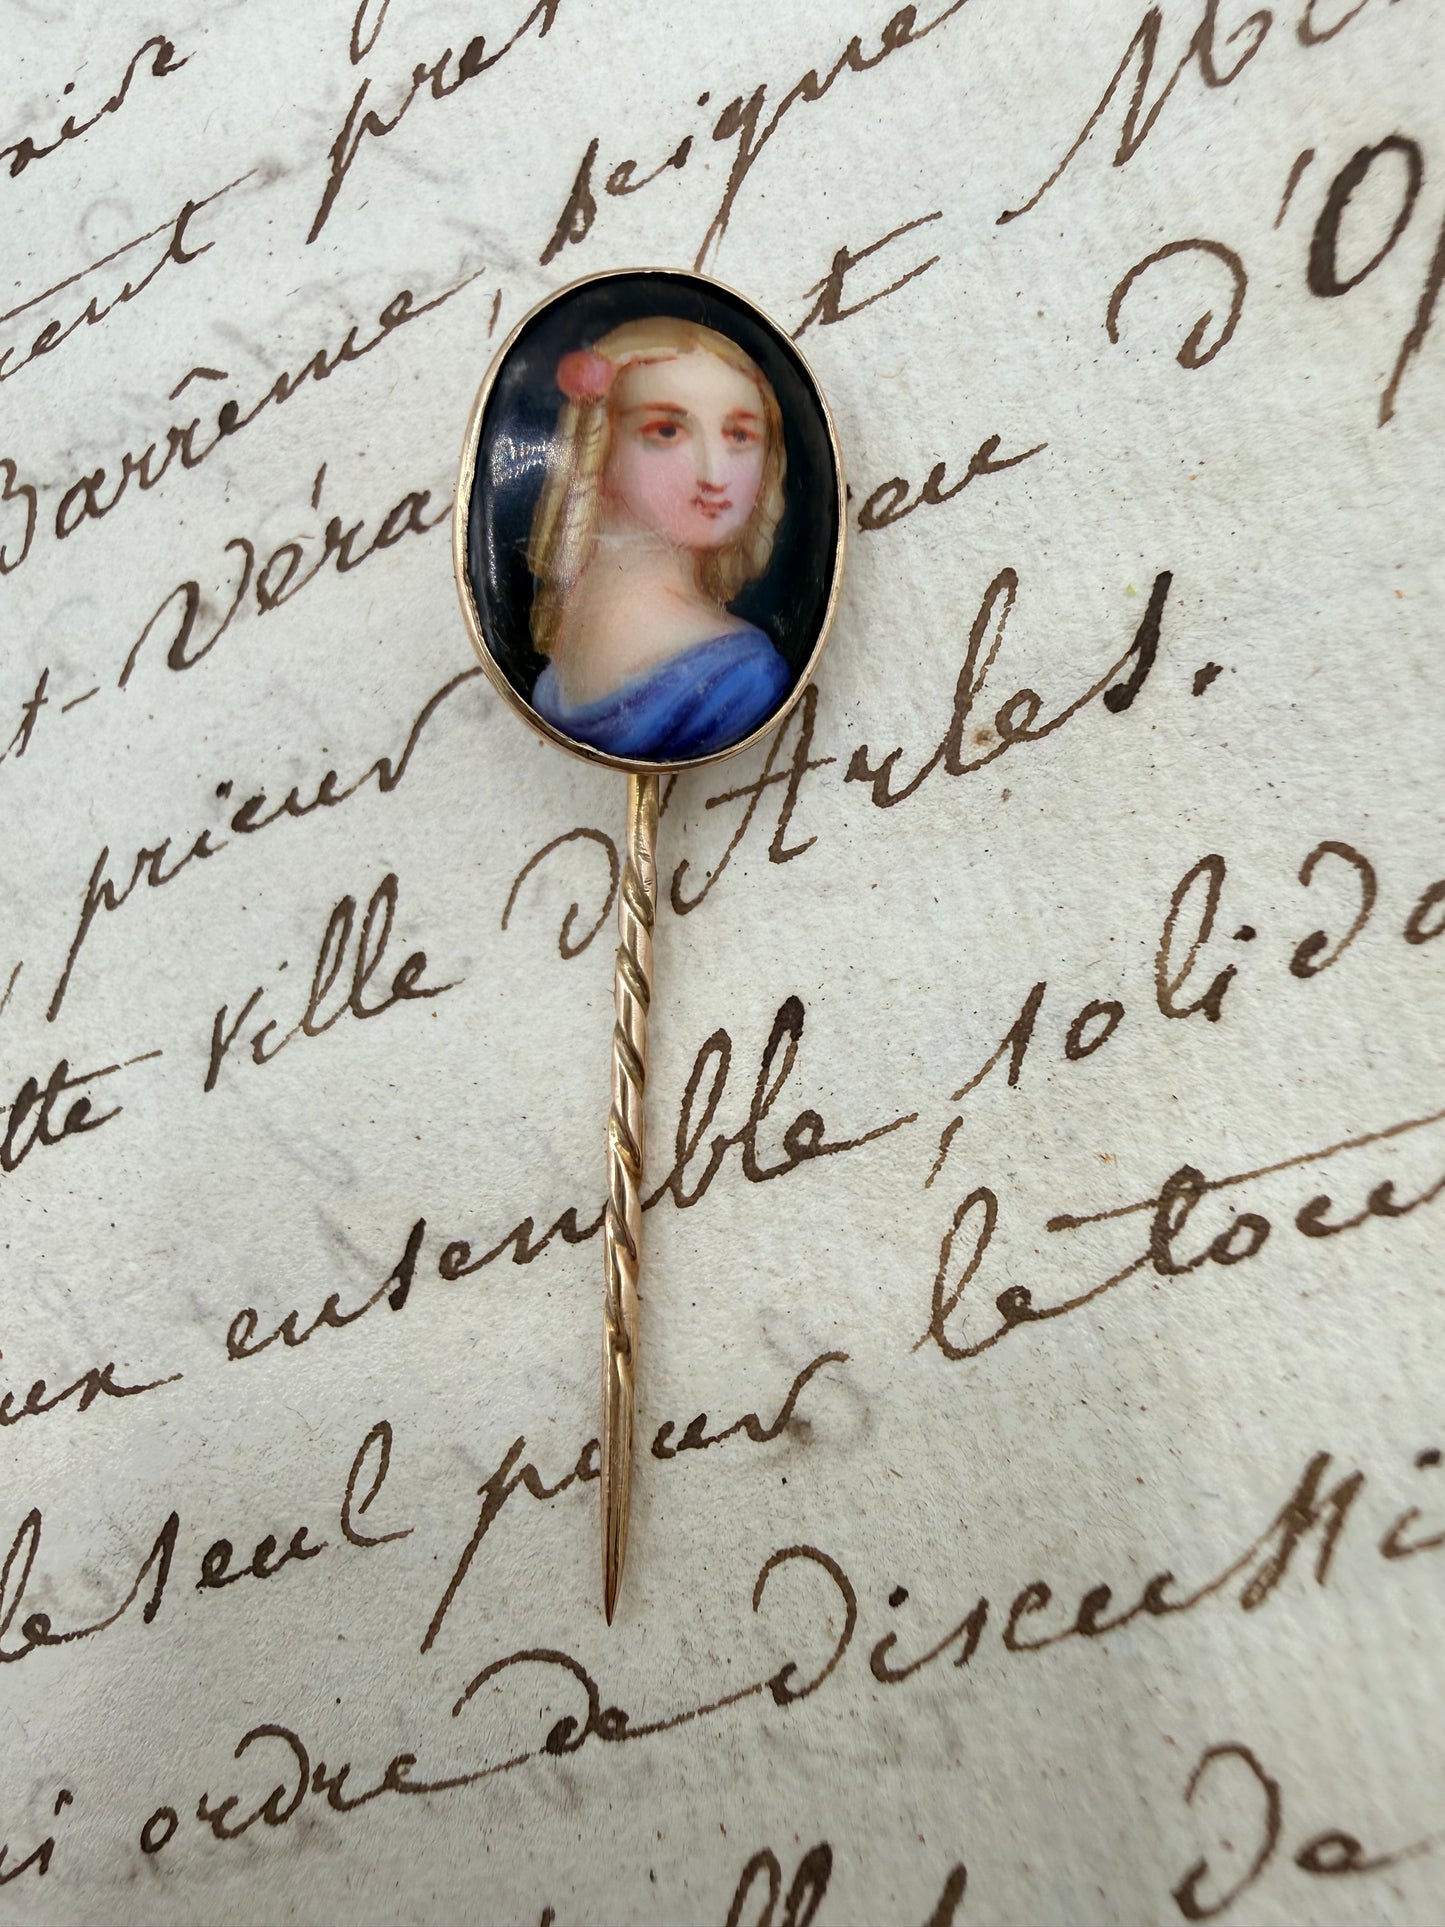 cent pres
Barrême, seigne
t - Véra et M
, prieur eu d'Op
tte ville d'Arles.
ux ensemble, solida
le seul pour le tout
ordre de discussi
de